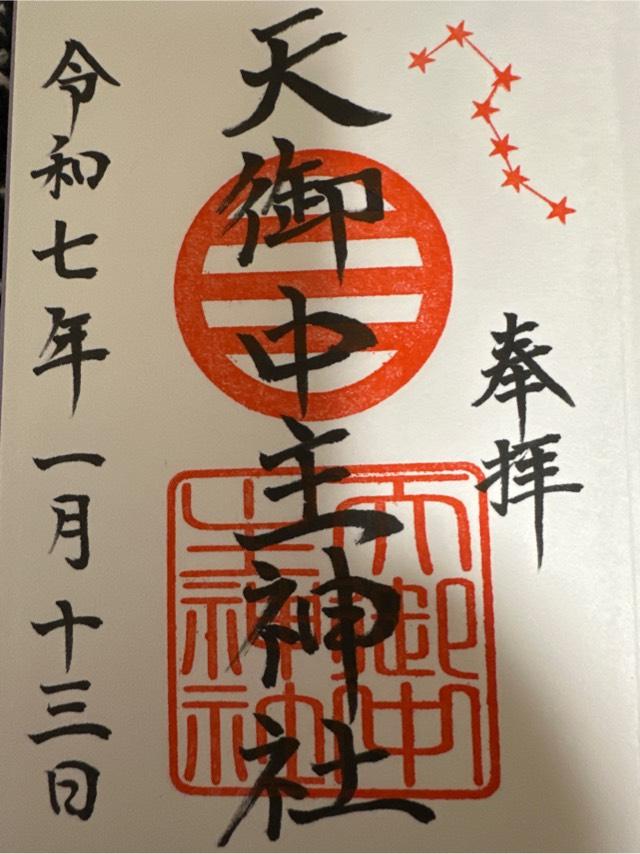 奉拝
天御中主神社
天御中
主神社
神社
令和七年一月十三日